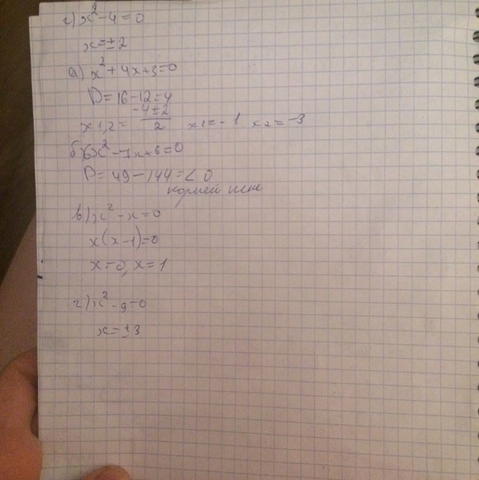 г) x² - 4 = 0
x = ± 2
а) x² + 4x + 3 = 0
D = 16 - 12 = 4
x 1,2 = -4±2/2 x1 = -1 x2 = -3
б) 6x² - 7x + 6 = 0
D = 49 - 144 = < 0
корней
в) x² - x = 0
x(x - 1) = 0
x = 0, x = 1
г) x² - 9 = 0
x = ± 3